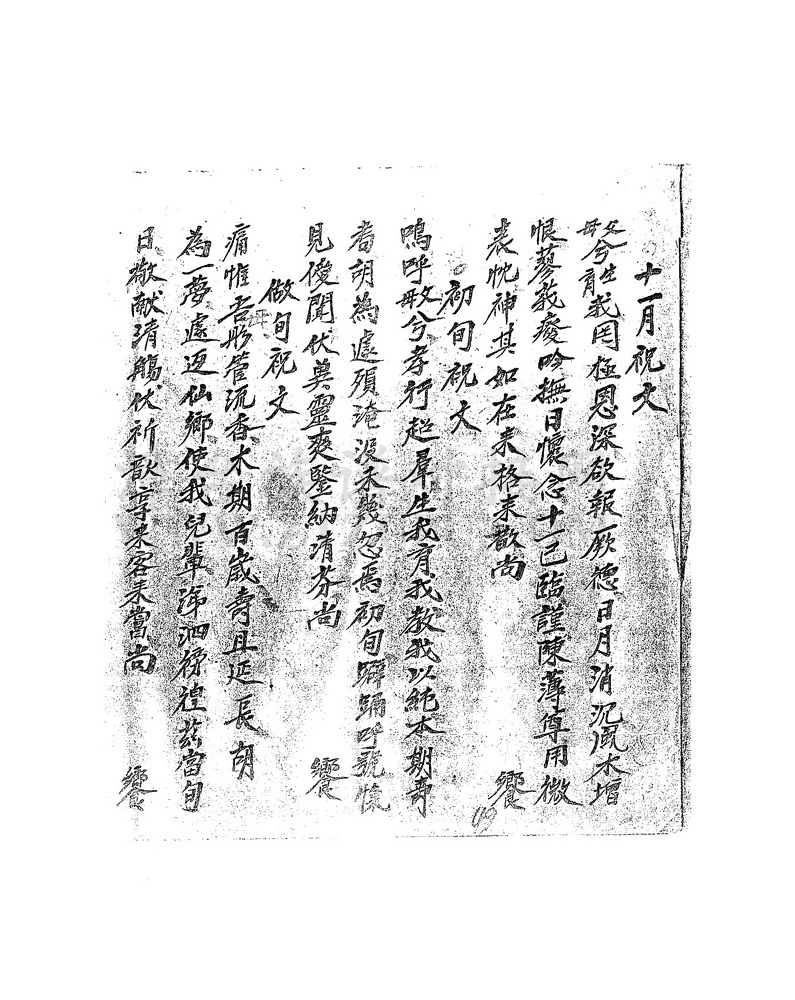 十一月祝文
父母兮生我育我罔極恩深欲報厥德日月消沉溉木增
恨蓼莪痿吟撫日懷念十一已臨謹陳薄奠用微
衷忱神其如在来格来歆尚 饗
初旬祝文
嗚呼父母兮孝行超羣生我育我教我以純本期壽
耈胡為遽殞淹没未幾忽焉初旬躃踊呼號愾
見僾聞伏冀靈爽鑒納清芬尚 饗
做旬祝文
痛惟吾母彤管流香本期百歲壽且延長胡
為一夢遽返仙鄉使我兒輩涕泗徬徨兹當旬
日敬献清觴伏祈歆享来客来嘗尚 饗